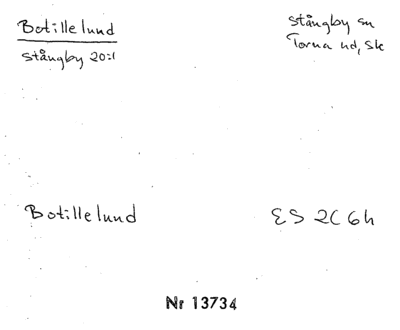 Botillelund
Stångby 20:1
Stångby sn
Torna hd, Sk
Botillelund
ES 2C 6h
Nr 13734